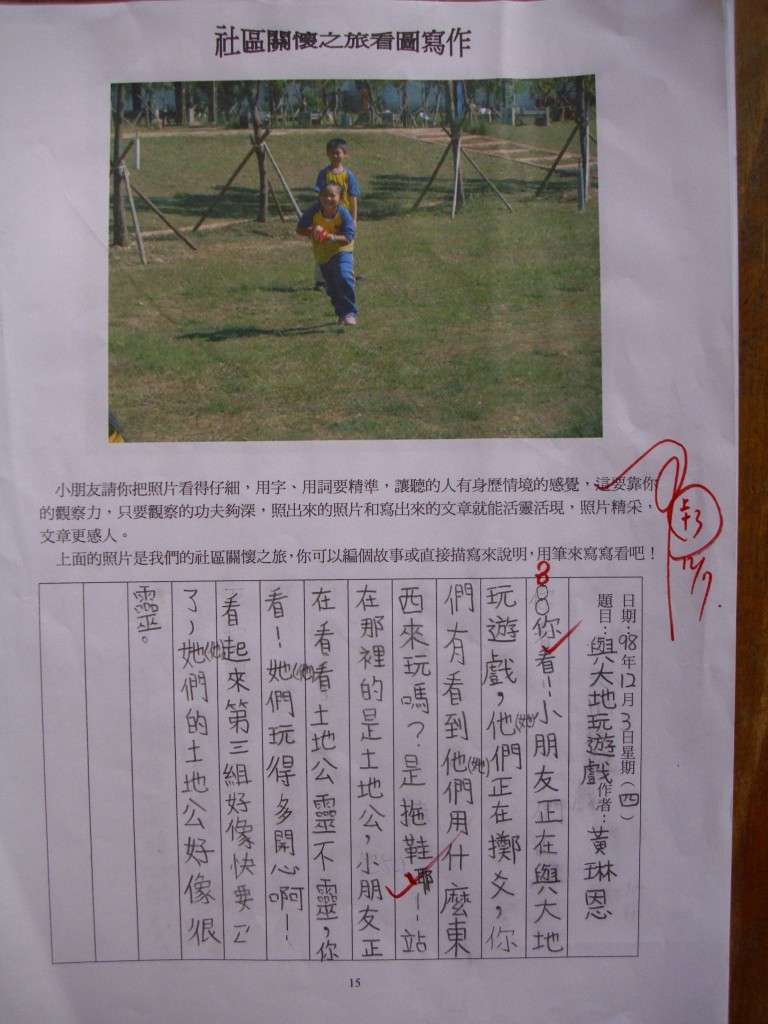 社區關懷之旅看圖寫作
小朋友請你把照片看得仔細，用字、用詞要精準，讓聽的人有身歷情境的感覺，這要靠你
的觀察力，只要觀察的功夫夠深，照出來的照片和寫出來的文章就能活靈活現，照片精采，
文章更感人。
上面的照片是我們的社區關懷之旅，你可以編個故事或直接描寫來說明，用筆來寫寫看吧！
12/7
日期：98年12月3日星期（四）
題目：與大地玩遊戲 作者：黃琳恩
你看！小朋友正在與大地
玩遊戲，他(她)們正在擲爻，你
們有看到他(她)們用什麼東
西來玩嗎？是拖鞋耶！站
在那裡的是土地公，小朋友正
在看看土地公靈不靈，你
看！她(他)們玩得多開心啊！
看起來第三組好像快要
了，她(他)們的土地公好像很
靈。
15